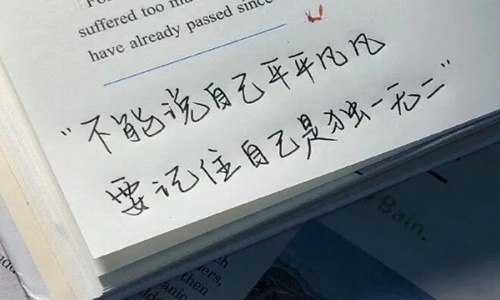 suffered too
have already passed since
"不能说自己平平凡凡
要记住自己是独一无二"
Bain.